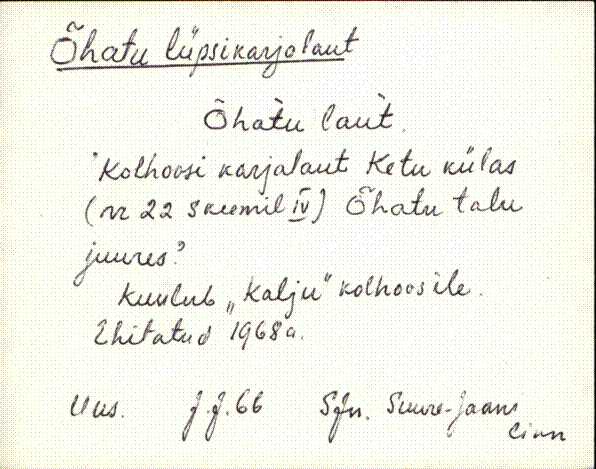 Õhatu lüpsikarjalaut
Õhatu laut.
'Kolhoosi karjalaut Ketu külas
(nr 22 skeemil IV) Õhatu talu
juures.'
Kuulub „Kalju" kolhoosile.
Ehitatud 1968a.
Uus. J.J.66 SJn. Suure-Jaani